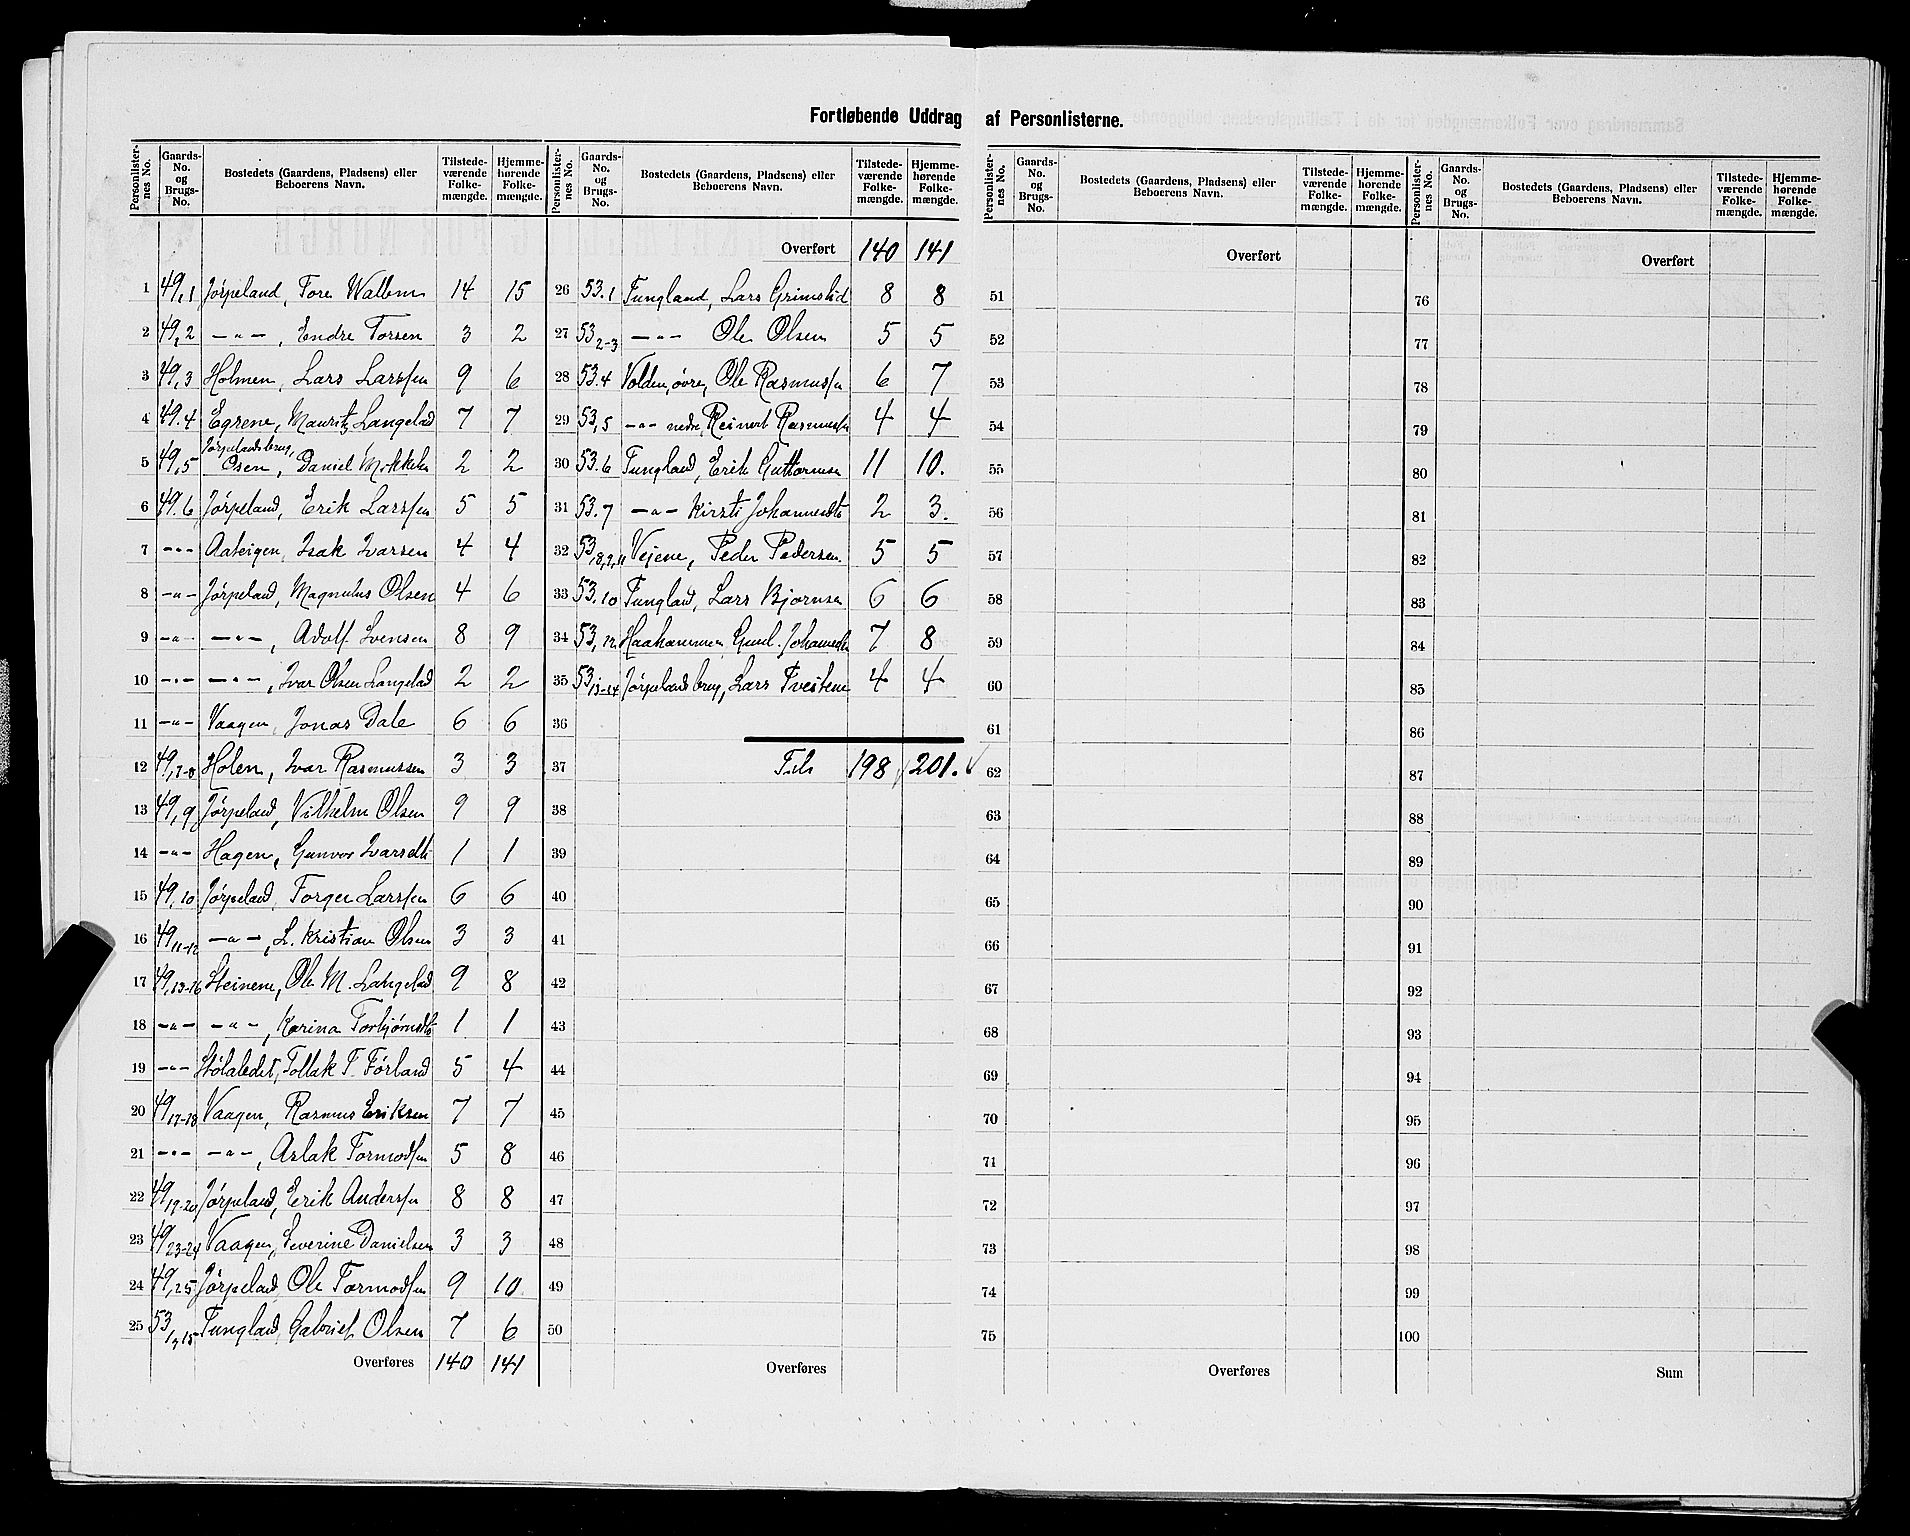 Fortløbende Uddrag af Personlisterne.
Personlister-nes No. | Gaards-No. og Brugs-No. | Bostedets (Gaardens, Pladsens) eller Beboerens Navn. | Tilstede-værende Folke-mængde. | Hjemme-hørende Folke-mængde.
1 49,1 Jørpeland, Tore Wallem 14 15
2 49,2 —"—, Endre Torsen 3 2
3 49,3 Holmen, Lars Larssen 9 6
4 49.4 Egrene, Mauritz Langelad 7 7
5 49,5 Jørpelandsbrug, Osen, Daniel 2 2
6 49.6 Jørpeland, Erik Larssen 5 5
7 —"— Aateigen, Isak Ivarsen 4 4
8 —"— Jørpeland, Magnulus Olsen 4 6
9 —"— —"—, Adolf Svensen 8 9
10 —"— —"—, Ivar Olsen Langelad 2 2
11 —"— Vaagen, Jonas Dale 6 6
12 49,7-8 Holen, Ivar Rasmussen 3 3
13 49,9 Jørpeland, Vilhelm Olsen 9 9
14 —"— Hagen, Gunvor Ivarsdtr 1 1
15 49,10 Jørpeland, Torger Larssen 6 6
16 49,11-12 —"—, L. Kristian Olsen 3 3
17 49,13-16 Steinene, Ole M. Langelad 9 8
18 —"— —"—, Karina Torbjørnsdtr 1 1
19 —"— Stølaledet, Tollak T. Førland 5 4
20 49,17-18 Vaagen, Rasmus Eriksen 7 7
21 —"— —"—, Aslak Tormodsen 5 8
22 49,19-20 Jørpeland, Erik Anderssen 8 8
23 49,23-24 Vaagen, Severine Danielsen 3 3
24 49,25 Jørpeland, Ole Tormodsen 9 10
25 53 Tungland, Gabriel Olsen 7 6
Overføres 140 141
Personlister-nes No. | Gaards-No. og Brugs-No. | Bostedets (Gaardens, Pladsens) eller Beboerens Navn. | Tilstede-værende Folke-mængde. | Hjemme-hørende Folke-mængde.
Overført 140 141
26 53.1 Tungland, Lars Grimslid 8 8
27 53,2-3 —"— Ole Olsen 5 5
28 53.4 Volden, øvre, Ole Rasmussen 6 7
29 53,5 —"— nedre, Reinert Rasmussen 4 4
30 53.6 Tungland, Erik Guttormsen 11 10.
31 53.7 —"— Kirsti Johannesdtr 2 3.
32 53,8,9,11 Vejene, Peder Pedersen 5 5
33 53.10 Tungland, Lars Bjørnsen 6 6
34 53,12 Haahammer, Gunl. Johannesdtr 7 8
35 53,13-14 Jørpelandsbrug, Lars Tveitene 4 4
36
37 Tils 198 201.
38
39
40
41
42
43
44
45
46
47
48
49
50
Overføres
Personlister-nes No. | Gaards-No. og Brugs-No. | Bostedets (Gaardens, Pladsens) eller Beboerens Navn. | Tilstede-værende Folke-mængde. | Hjemme-hørende Folke-mængde.
Overført
51
52
53
54
55
56
57
58
59
60
61
62
63
64
65
66
67
68
69
70
71
72
73
74
75
Overføres
Personlister-nes No. | Gaards-No. og Brugs-No. | Bostedets (Gaardens, Pladsens) eller Beboerens Navn. | Tilstede-værende Folke-mængde. | Hjemme-hørende Folke-mængde.
Overført
76
77
78
79
80
81
82
83
84
85
86
87
88
89
90
91
92
93
94
95
96
97
98
99
100
Sum